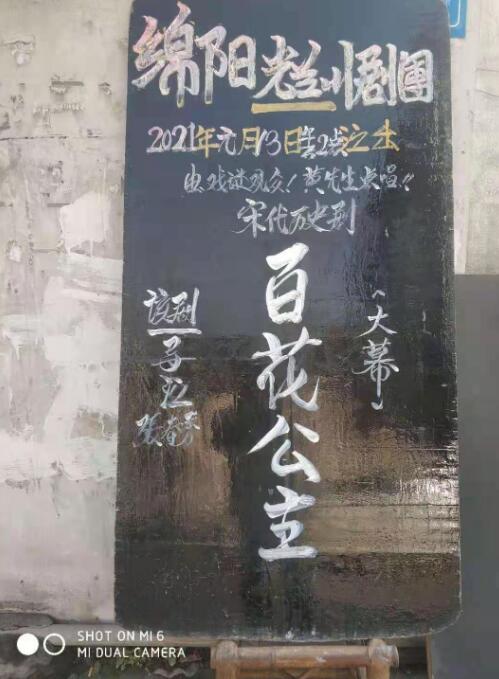 绵阳老兰川剧團
2021年元月13日第2场之出
由戏谜观众！黄先生点唱！！
宋代历史剧
百花公主
(大幕)
该剧
导
张春芬
SHOT ON MI 6
MI DUAL CAMERA